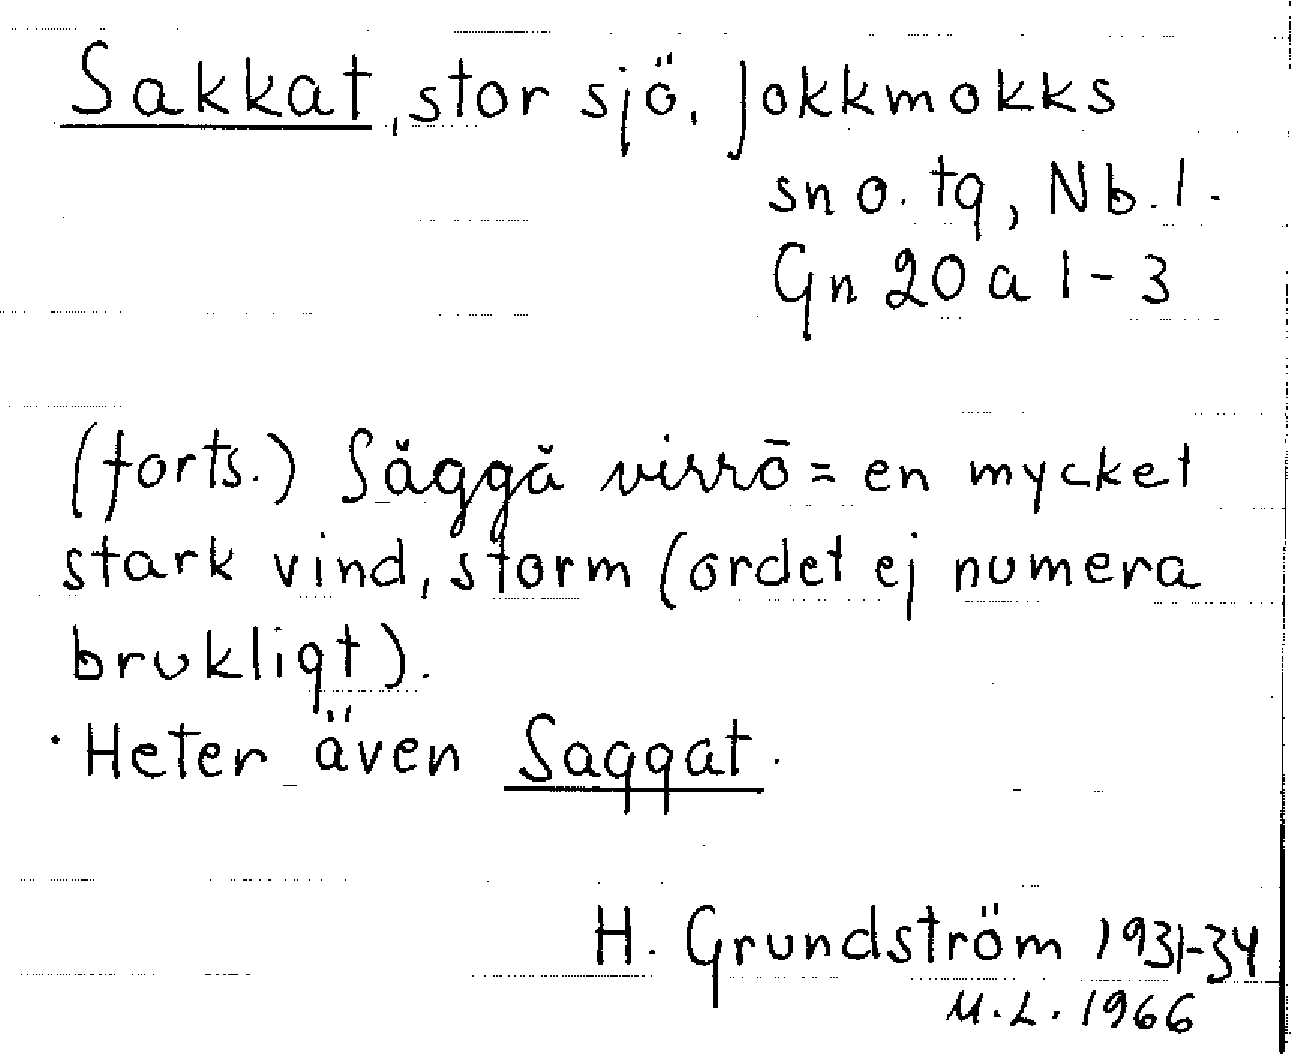 Sakkat, stor sjö. Jokkmokks
sn o. tg, Nb. l.
Gn 20 a 1-3
(forts.) Săggă virrō = en mycket
stark vind, storm (ordet ej numera
brukligt).
Heter även Saggat.
H. Grundström 1931-34
M.L. 1966